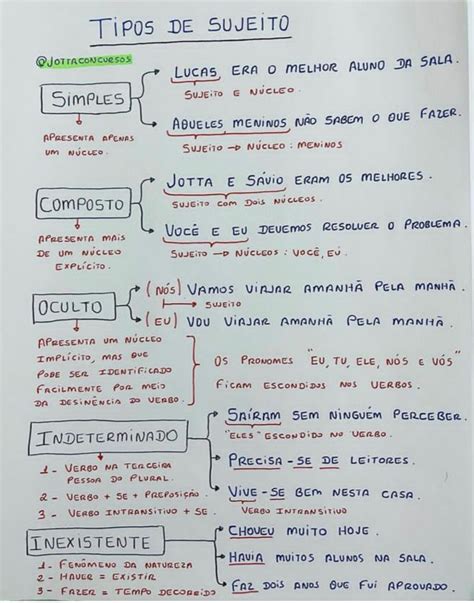 TIPOS DE SUJEITO
@JOTTACONCURSOS
SIMPLES
APRESENTA APENAS
UM NÚCLEO.
LUCAS, ERA O MELHOR ALUNO DA SALA.
SUJEITO E NÚCLEO.
AQUELES MENINOS NÃO SABEM O QUE FAZER.
SUJEITO → NÚCLEO: MENINOS
COMPOSTO
APRESENTA MAIS
DE UM NÚCLEO
EXPLÍCITO.
JOTTA E SÁVIO ERAM OS MELHORES.
SUJEITO COM DOIS NÚCLEOS.
VOCÊ E EU DEVEMOS RESOLVER O PROBLEMA.
SUJEITO → NÚCLEOS: VOCÊ, EU.
OCULTO
APRESENTA UM NÚCLEO
IMPLÍCITO, MAS QUE
PODE SER IDENTIFICADO
FACILMENTE POR MEIO
DA DESINÊNCIA DO VERBO.
(NÓS) VAMOS VIAJAR AMANHÃ PELA MANHÃ.
SUJEITO
(EU) VOU VIAJAR AMANHÃ PELA MANHÃ.
OS PRONOMES "EU, TU, ELE, NÓS E VÓS"
FICAM ESCONDIDOS NOS VERBOS.
INDETERMINADO
1 - VERBO NA TERCEIRA
PESSOA DO PLURAL.
2 - VERBO + SE + PREPOSIÇÃO.
3 - VERBO INTRANSITIVO + SE.
SAÍRAM SEM NINGUÉM PERCEBER.
"ELES" ESCONDIDO NO VERBO.
PRECISA-SE DE LEITORES.
VIVE-SE BEM NESTA CASA.
VERBO INTRANSITIVO
INEXISTENTE
1 - FENÔMENO DA NATUREZA
2 - HAVER = EXISTIR
3 - FAZER = TEMPO DECORRIDO
CHOVEU MUITO HOJE.
HAVIA MUITOS ALUNOS NA SALA.
FAZ DOIS ANOS QUE FUI APROVADO.